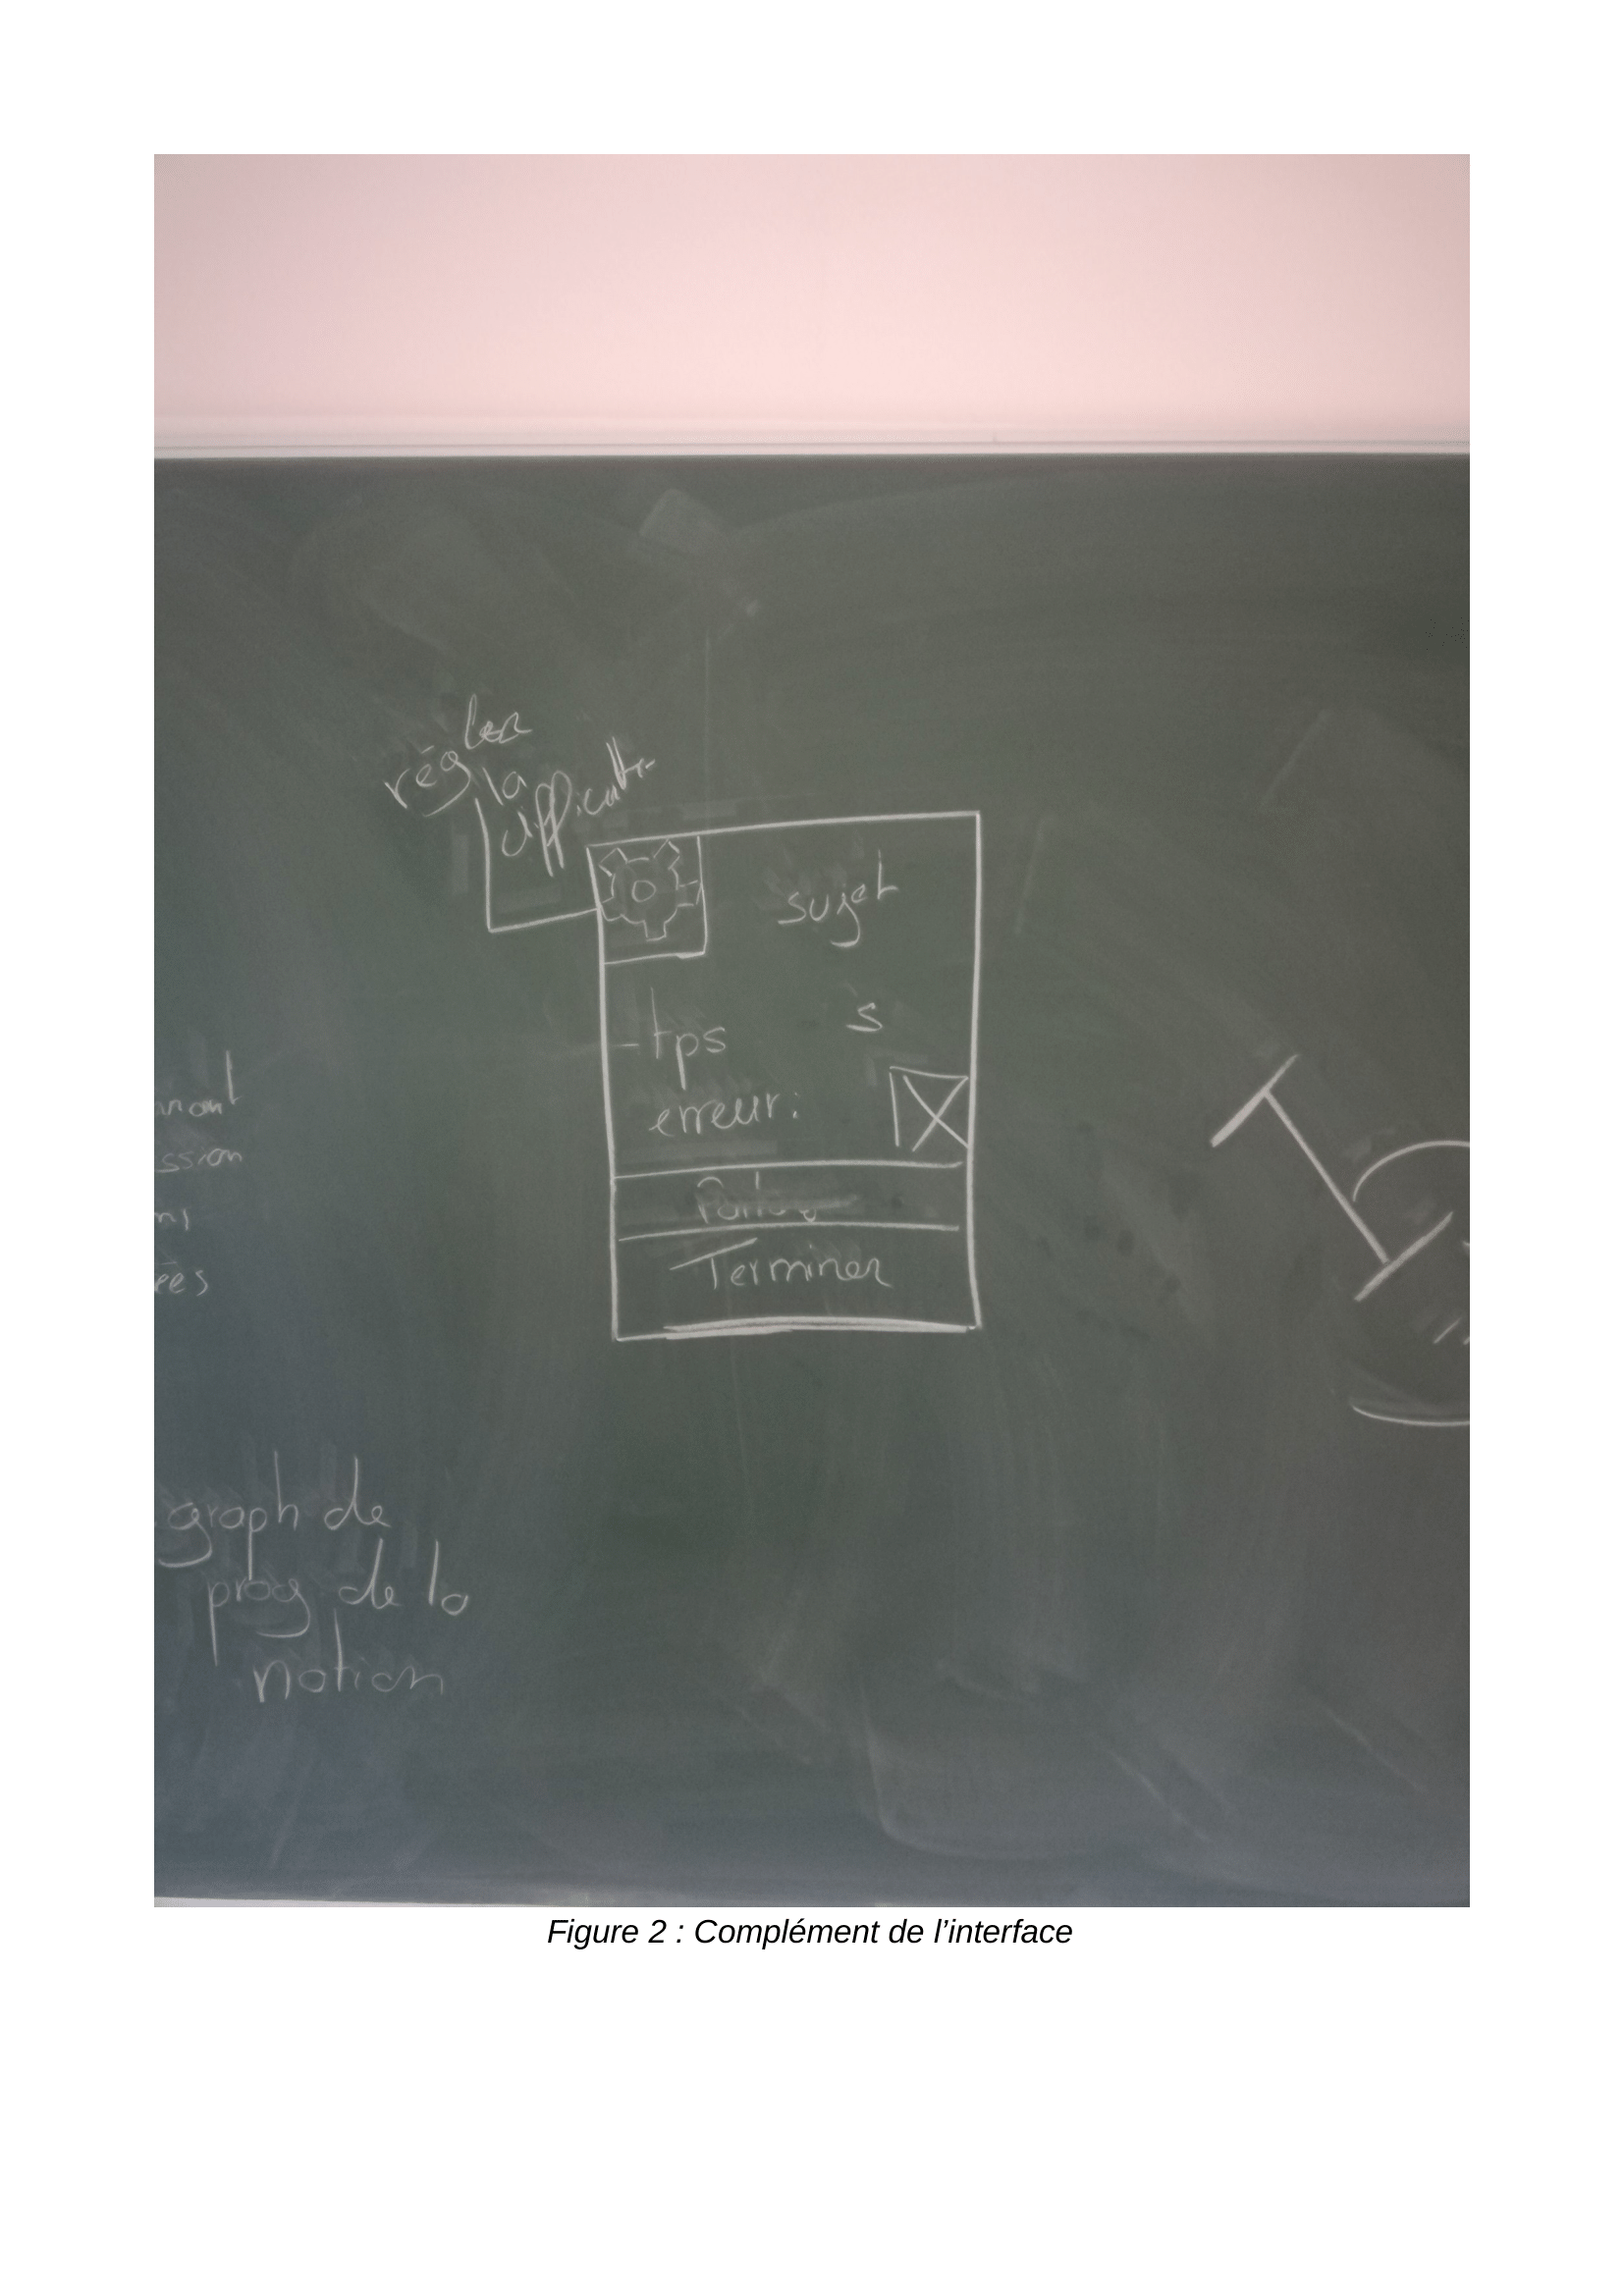 régler
la
difficulté
sujet
tps s
erreur:
Terminer
ssion
ées
graph de
prog de la
notion
Figure 2 : Complément de l’interface